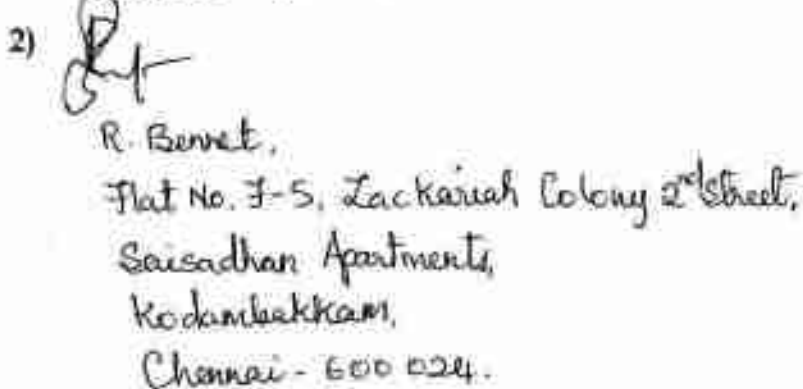 2)
R. Bennet,
Flat No. F-5, Zackariah Colony 2nd Street,
Saisadhan Apartments,
Kodambakkam,
Chennai - 600 024.